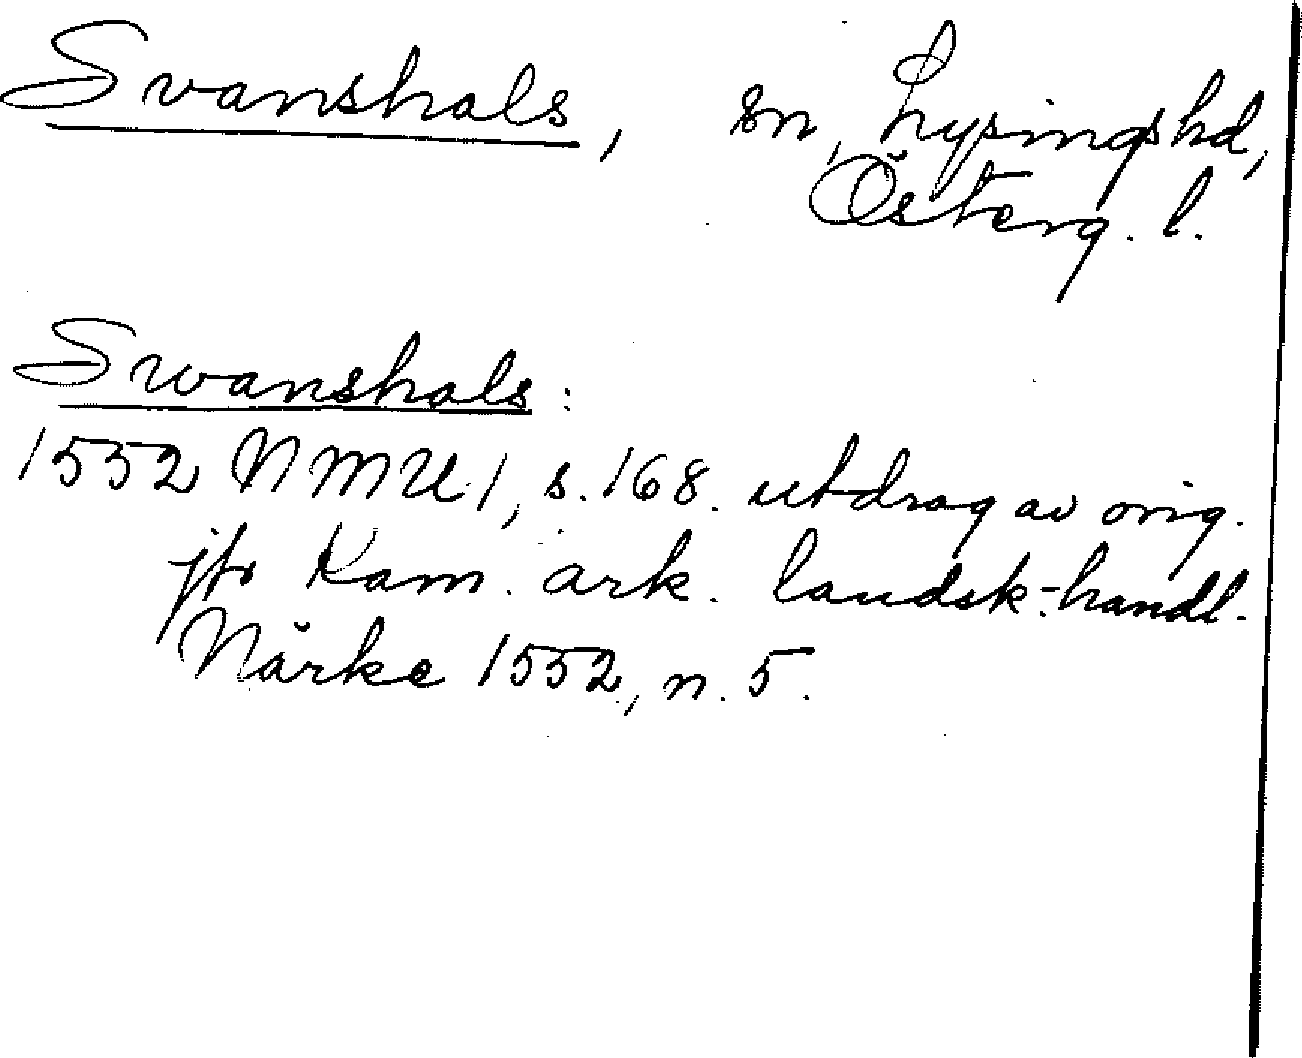 Svanshals, sn, Lysings hd,
Österg. l.
Swanshals:
1552 NMU 1, s. 168. utdrag av orig.
jfr Kam. ark. landsk.-handl.
Närke 1552, n. 5.